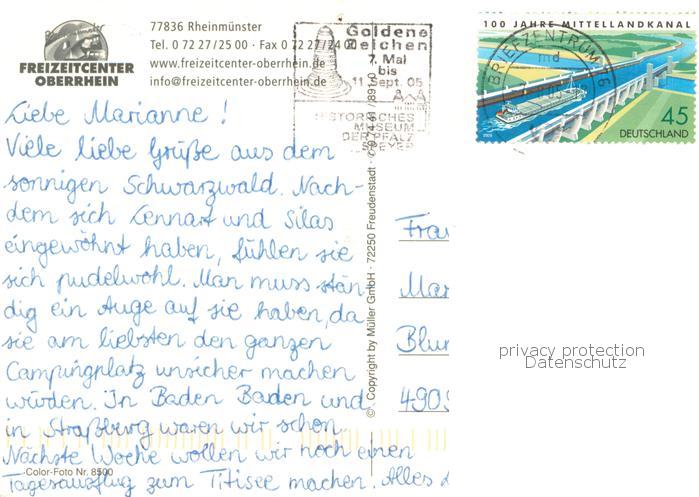 77836 Rheinmünster
Tel. 0 72 27/25 00 · Fax 0 72 27/24 00
www.freizeitcenter-oberrhein.de
info@freizeitcenter-oberrhein.de
FREIZEITCENTER
OBERRHEIN
Goldene
Zeichen
7. Mai
bis
11 Sept. 05
HISTORISCHES
MUSEUM
DER PFALZ
SPEYER
100 JAHRE MITTELLANDKANAL
BRIEFZENTRUM
md
45
DEUTSCHLAND
Liebe Marianne!
Viele liebe Grüße aus dem
sonnigen Schwarzwald. Nach-
dem sich Lennart und Silas
eingewöhnt haben, fühlen sie
sich pudelwohl. Man muss stän-
dig ein Auge auf sie haben, da
sie am liebsten den ganzen
Campingplatz unsicher machen
würden. In Baden Baden und
in Straßburg waren wir schon.
Nächste Woche wollen wir noch einen
Tagesausflug zum Titisee machen. Alles
Color-Foto Nr. 8500
© Copyright by Müller GmbH · 72250 Freudenstadt ·
Frau
Mar
Blum
490
privacy protection
Datenschutz